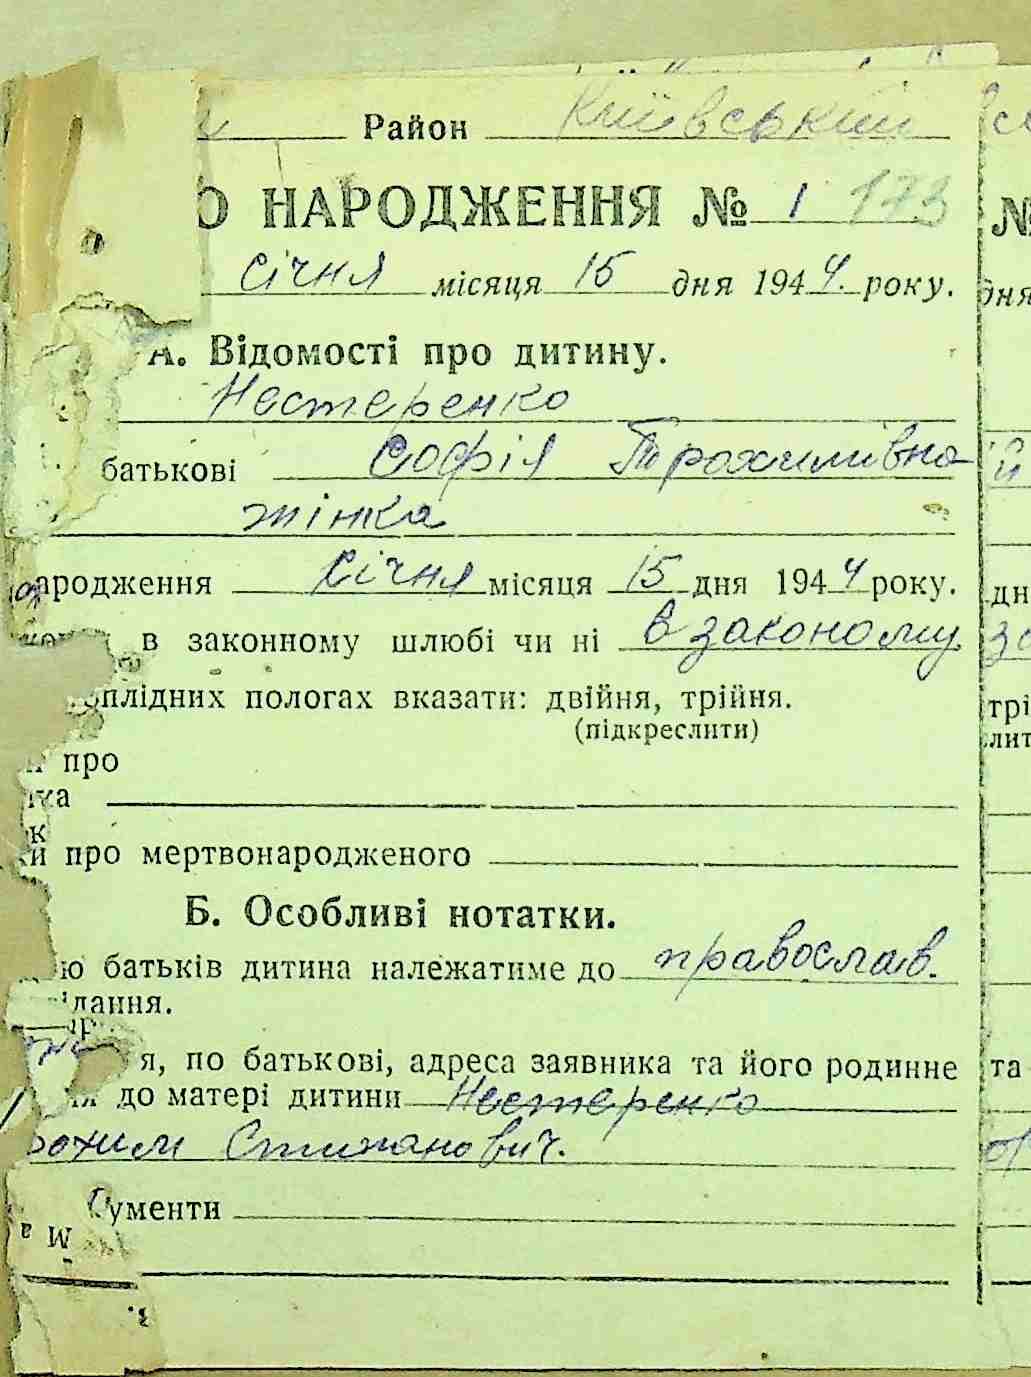 Район Київський
О НАРОДЖЕННЯ № 1 173
Січня місяця 15 дня 1944. року.
А. Відомості про дитину.
Нестеренко
батькові Софія Трохимівна
жінка
ародження Січня місяця 15 дня 1944 року.
в законному шлюбі чи ні в законому
оплідних пологах вказати: двійня, трійня.
(підкреслити)
про
ка
и про мертвонародженого
Б. Особливі нотатки.
ю батьків дитина належатиме до православ.
дання.
я, по батькові, адреса заявника та його родинне
до матері дитини Нестеренко
рохим Степанович.
кументи